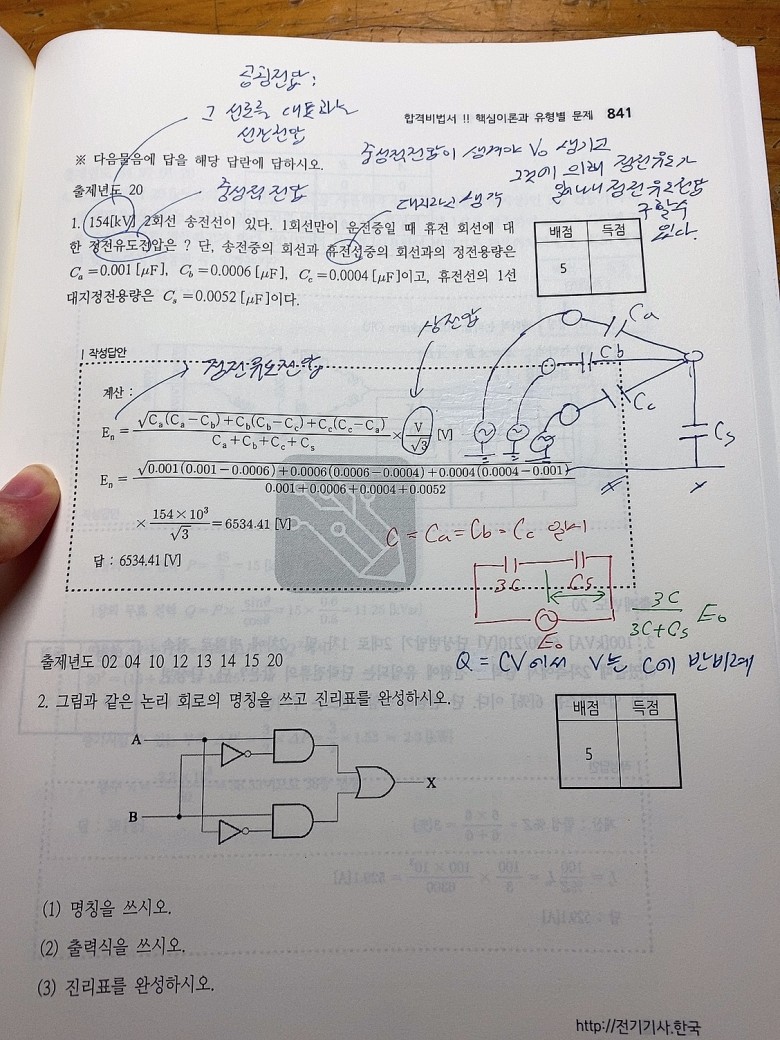 공칭전압;
그 선로를 대표하는
선간전압
합격비법서 !! 핵심이론과 유형별 문제 841
※ 다음물음에 답을 해당 답란에 답하시오.
중성적전압이 생겨야 V₀ 생기고
그것에 의해 정전유도가
정전유도전압
구할수
있다.
출제년도 20
중성적 전압
대지라고 생각
1. 154[kV] 2회선 송전선이 있다. 1회선만이 운전중일 때 휴전 회선에 대
한 정전유도전압은 ? 단, 송전중의 회선과 휴전선중의 회선과의 정전용량은
Cₐ=0.001[μF], C_b=0.0006[μF], C_c=0.0004[μF]이고, 휴전선의 1선
대지정전용량은 Cₛ=0.0052[μF]이다.
배점 득점
5
상전압
Ca
Cb
Cc
Cs
작성답안
정전유도전압
계산 :
Eₙ = √(Cₐ(Cₐ−C_b)+C_b(C_b−C_c)+C_c(C_c−Cₐ)) / (Cₐ+C_b+C_c+Cₛ) × V/√3 [V]
Eₙ = √(0.001(0.001−0.0006)+0.0006(0.0006−0.0004)+0.0004(0.0004−0.001)) / (0.001+0.0006+0.0004+0.0052)
× 154×10³/√3 = 6534.41[V]
답 : 6534.41[V]
C = Ca = Cb = Cc 일시
3C Cs
E₀
3C/(3C+Cs) E₀
Q = CV에서 V는 C에 반비례
출제년도 02 04 10 12 13 14 15 20
2. 그림과 같은 논리 회로의 명칭을 쓰고 진리표를 완성하시오.
배점 득점
5
A
B
X
(1) 명칭을 쓰시오.
(2) 출력식을 쓰시오.
(3) 진리표를 완성하시오.
http://전기기사.한국